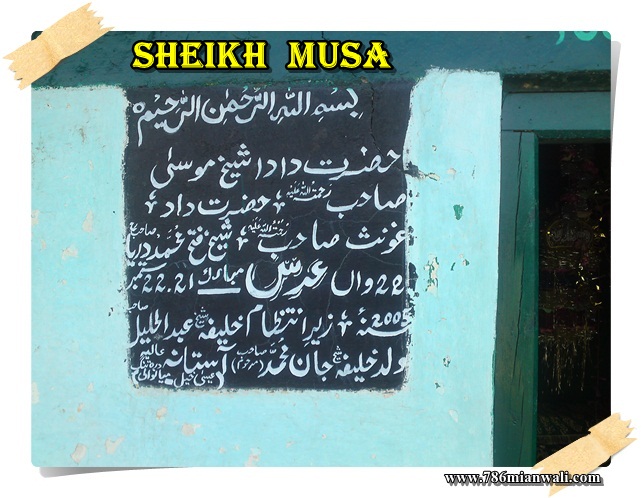 SHEIKH MUSA
786
بسم اللہ الرحمٰن الرحیم
حضرت دادا شیخ موسیٰ
صاحب رحمۃ اللہ علیہ ؛ حضرت داد ؛
غوث صاحب رحمۃ اللہ علیہ ؛ شیخ فتح محمد دریا صاحب
22 واں عرس مبارک 22.21 ستمبر
2005ء ؛ زیر انتظام خلیفہ شیخ عبدالجلیل صاحب
ولد خلیفہ شیخ جان محمد صاحب (مرحوم) آستانہ عالیہ درہ تنگ
عیسیٰ خیل میانوالی
www.786mianwali.com